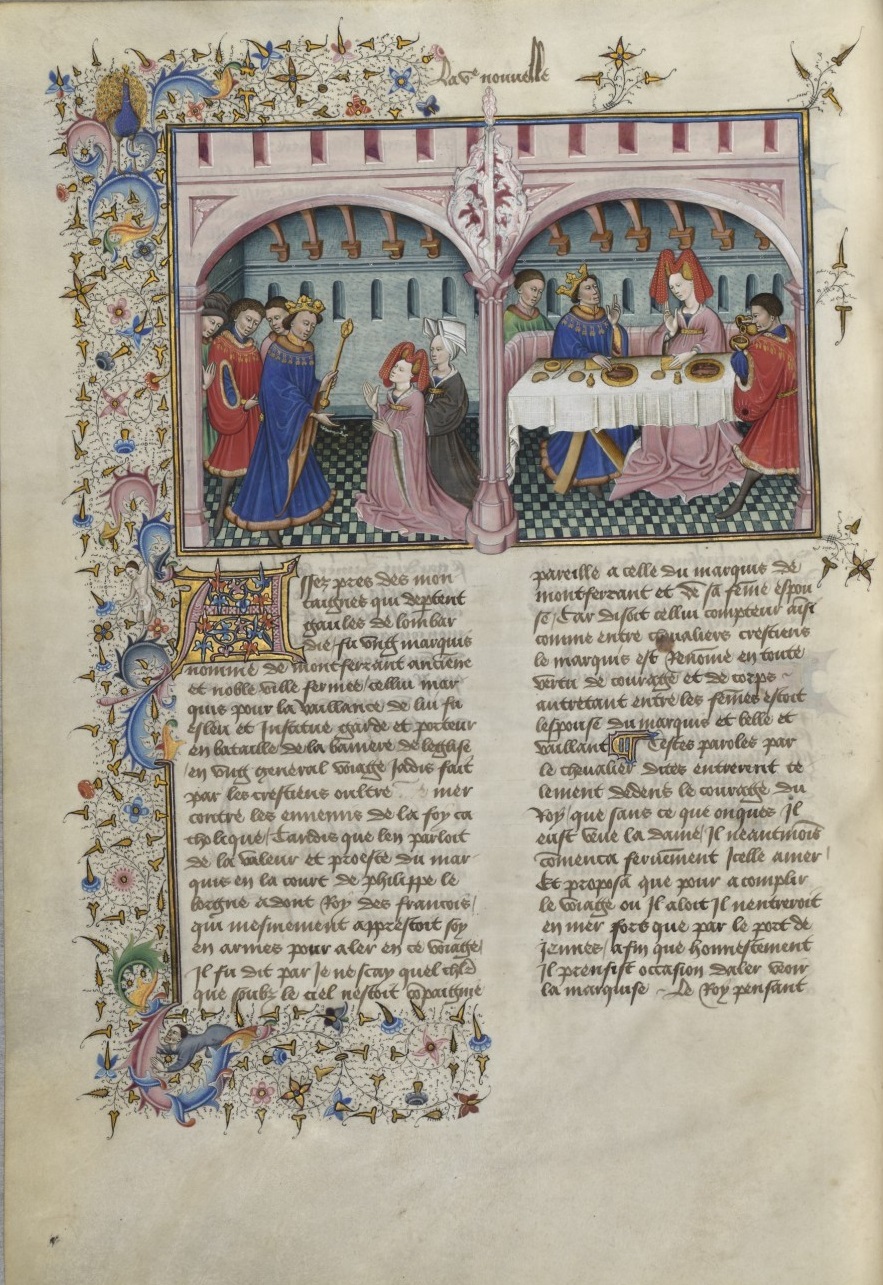 La ve nouvelle
Assez pres des mon
taignes qui deptent
gaules de lombar
die / fu vng marquis
nomme de montferrant anciene
et noble ville fermee / cellui mar
quis pour la vaillance de lui fu
esleu et Institue garde et porteur
en bataille de la baniere de leglise
en vng general voiage Jadis fait
par les crestiens oultre mer
contre les ennemis de la foy ca
tholique / Tandis que len parloit
de la valeur et proesce du mar
quis en la court de phelippe le
borgne adont Roy des francois /
qui mesmement apprestoit soy
en armes pour aler en ce voiage /
Il fu dit par Je ne scay quel chlr
que soubz le ciel nestoit cõpaignie
pareille a celle du marquis de
montferrant et de sa feme espou
se / Car disoit cellui compteur aisi
comme entre chevaliers crestiens
le marquis est Renome en toute
vertu de courage et de corps
autretant entre les femes estoit
lespouse du marquis et belle et
vaillant Cestes paroles par
le chevalier dites entrerent te
lement dedens le courage du
Roy / que sans ce que onques Il
eust veue la dame / Il neantmois
comenca feruement Icelle amer /
Et proposa que pour acomplir
le voiage ou Il aloit Il nentreroit
en mer fors que par le port de
Jennes / afin que honnestement
Il prensist occasion daler veoir
la marquise Le Roy pensant